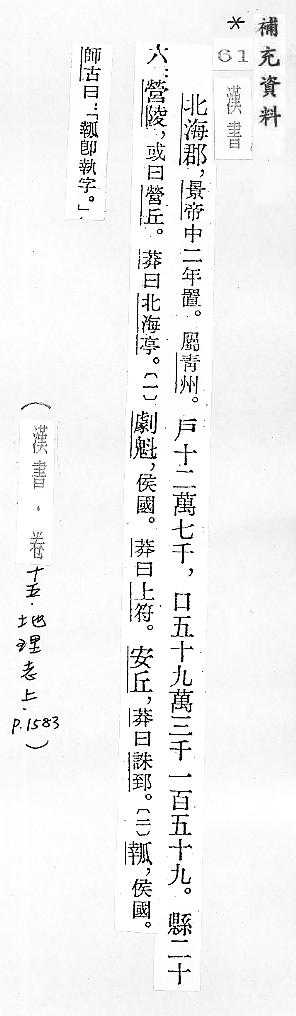 補充資料
* 61 漢書
北海郡，景帝中二年置。屬青州。戶十二萬七千，口五十九萬三千一百五十九。縣二十
六：營陵，或曰營丘。莽曰北海亭。〔一〕劇魁，侯國。莽曰上符。安丘，莽曰誅郅。〔三〕瓡，侯國。
師古曰：「瓡卽執字。」
（漢書．卷十五．地理志上．P.1583）